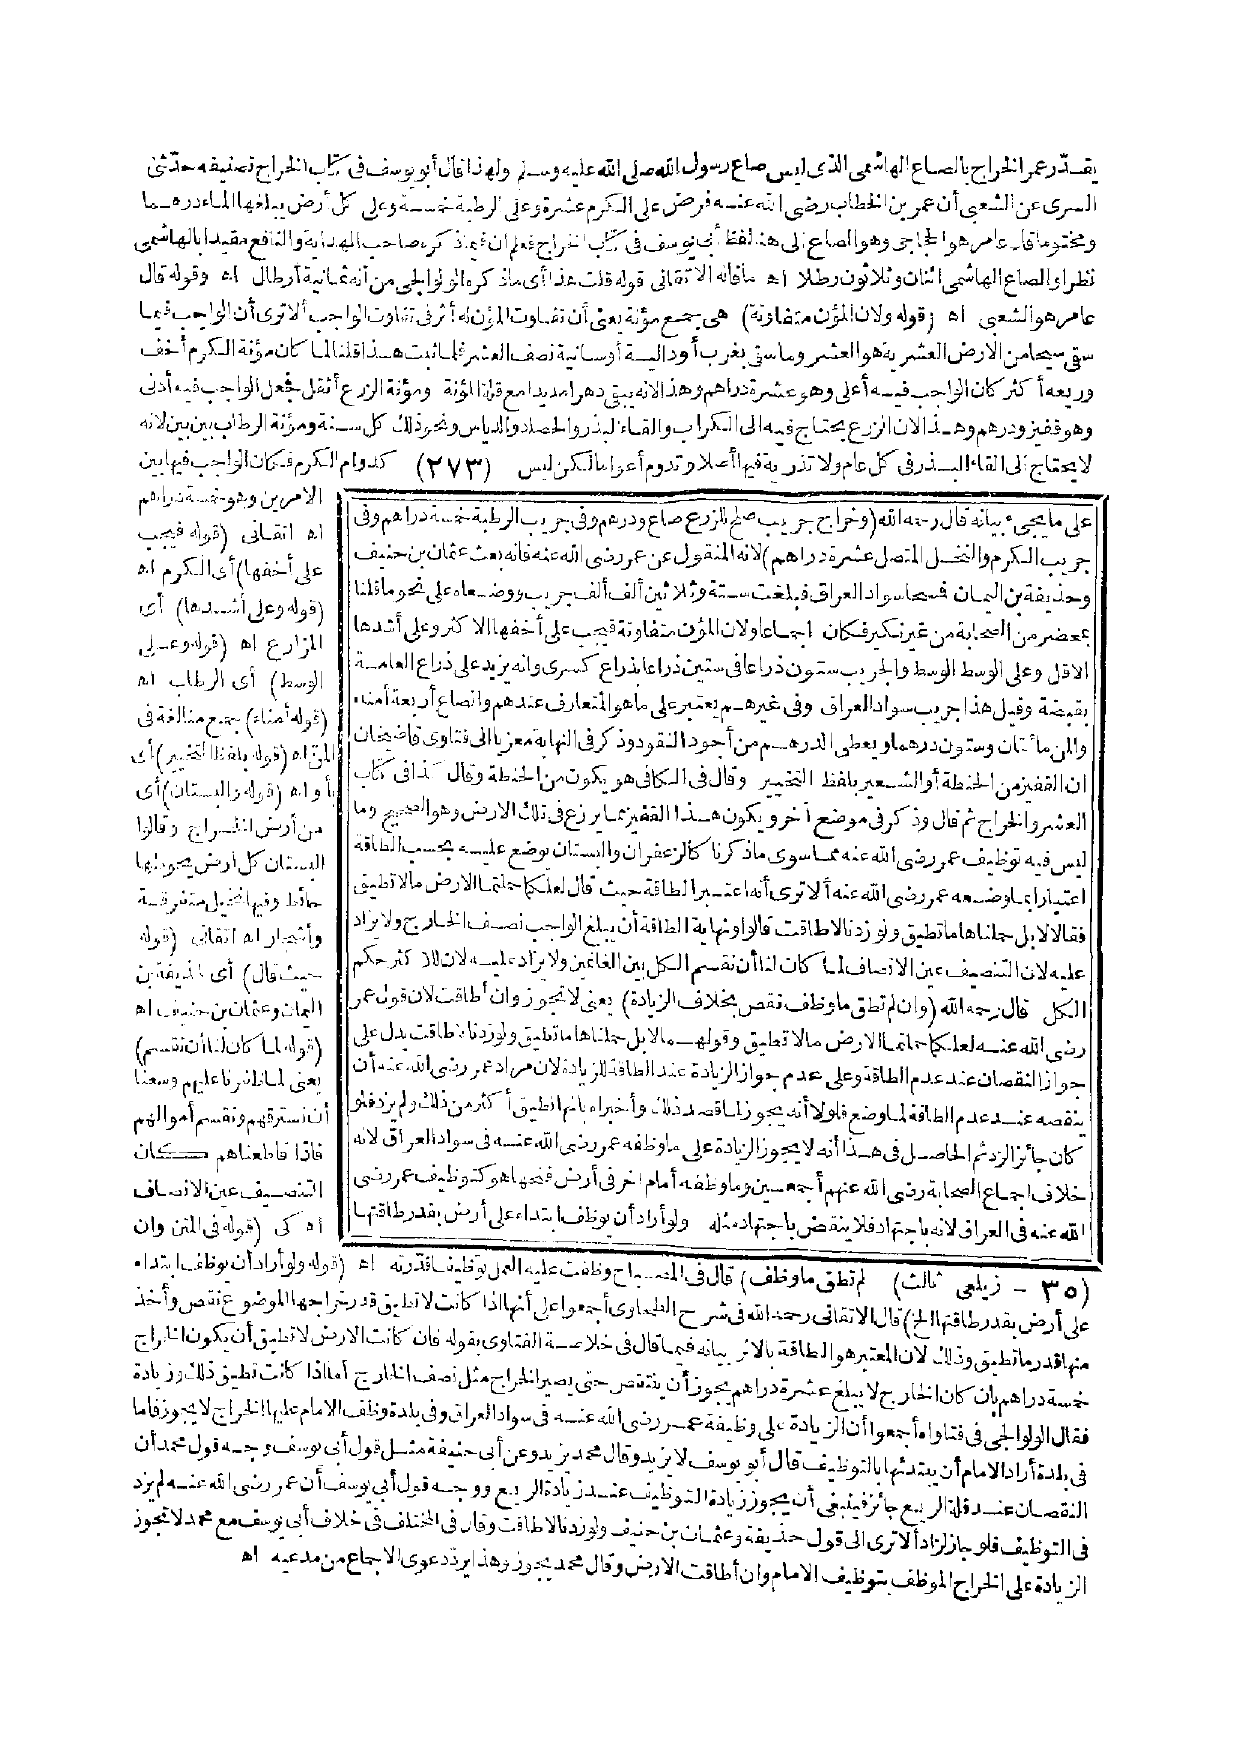 يقدّر عمر الخراج بالصاع الهاشمى الذى ليس صاع رسول الله صلى الله عليه وسلم ولهذا قال أبو يوسف فى كتاب الخراج تصنيفه حدّثنى
السرى عن الشعبى أن عمر بن الخطاب رضى الله عنه فرض على الكرم عشرة وعلى الرطبة خمسة وعلى كل أرض يبلغها الماء درهما
ومختوما قال عامر هو الحجاجى وهو الصاع الى هنا لفظ أبى يوسف فى كتاب الخراج فعلم ان فيما ذكره صاحب الهداية والنافع مقيدا بالهاشمى
نظرا والصاع الهاشمى اثنان وثلاثون رطلا اه ماقاله الاتقانى قوله قلت هذا أى ماذكره الولوالجى من أنه ثمانية أرطال اه وقوله قال
عامر هو الشعبى اه (قوله ولان المؤن متفاوتة) هى جمع مؤنة يعنى أن تفاوت المؤن له أثر فى تفاوت الواجب ألا ترى أن الواجب فيما
سقى سيحا من الارض العشرية هو العشر وما سقى بغرب أو دالية أو سانية نصف العشر فلما ثبت هذا قلنا لما كان مؤنة الكرم أخف
وريعه أكثر كان الواجب فيه أعلى وهو عشرة دراهم وهذا لانه يبقى دهرا مديدا مع قلة المؤنة ومؤنة الزرع أثقل فجعل الواجب فيه أدنى
وهو قفيز ودرهم وهذا لان الزرع يحتاج فيه الى الكراب والقاء البذر والحصاد والدياس ونحو ذلك كل سنة ومؤنة الرطاب بين بين لانه
لا يحتاج الى القاء البذر فى كل عام ولا تذرية فيها أصلا وتدوم أعواما لكن ليس (٢٧٣) كدوام الكرم فكان الواجب فيها بين
الامرين وهو خمسة دراهم
اه اتقانى (قوله فيجب
على أخفها) أى الكرم اه
(قوله وعلى أشدها) أى
المزارع اه (قوله وعلى
الوسط) أى الرطاب اه
(قوله أمناء) جمع منا لغة فى
المنّ اه (قوله بلفظ التخيير) أى
بأو اه (قوله والبستان) أى
من أرض الخراج وقالوا
البستان كل أرض يحوطها
حائط وفيها نخيل متفرقة
وأشجار اه اتقانى (قوله
حيث قال) أى لحذيفة بن
اليمان وعثمان بن حنيف اه
(قوله لما كان لنا أن نقسم)
يعنى لما ظفرنا عليهم وسعنا
أن نسترقهم ونقسم أموالهم
فاذا قاطعناهم كان
التنصيف عين الانصاف
اه كى (قوله فى المتن وان
على ما يجىء بيانه قال رحمه الله (وخراج جريب صلح للزرع صاع ودرهم وفى جريب الرطبة خمسة دراهم وفى
جريب الكرم والنخل المتصل عشرة دراهم) لانه المنقول عن عمر رضى الله عنه فانه بعث عثمان بن حنيف
وحذيفة بن اليمان فمسحا سواد العراق فبلغت ستة وثلاثين ألف ألف جريب ووضعاه على نحو ما قلنا
بمحضر من الصحابة من غير نكير فكان اجماعا ولان المؤن متفاوتة فيجب على أخفها الاكثر وعلى أشدها
الاقل وعلى الوسط الوسط والجريب ستون ذراعا فى ستين ذراعا بذراع كسرى وانه يزيد على ذراع العامة
بقبضة وقيل هذا جريب سواد العراق وفى غيرهم يعتبر على ما هو المتعارف عندهم والصاع أربعة أمناء
والمن مائتان وستون درهما ويعطى الدرهم من أجود النقود وذكر فى النهاية معزيا الى فتاوى قاضيخان
ان القفيز من الحنطة أو الشعير بلفظ التخيير وقال فى الكافى هو يكون من الحنطة وقال كذا فى كتاب
العشر والخراج ثم قال وذكر فى موضع آخر ويكون هذا القفيز مما يزرع فى تلك الارض وهو الصحيح وما
ليس فيه توظيف عمر رضى الله عنه مما سوى ماذكرنا كالزعفران والبستان يوضع عليه بحسب الطاقة
اعتبارا بما وضعه عمر رضى الله عنه ألا ترى أنه اعتبر الطاقة حيث قال لعلكما حملتما الارض مالا تطيق
فقالا لا بل حملناها ما تطيق ولو زدنا لاطاقت قالوا ونهاية الطاقة أن يبلغ الواجب نصف الخارج ولا يزاد
عليه لان التنصيف عين الانصاف لما كان لنا أن نقسم الكل بين الغانمين ولا يزاد عليه لان للاكثر حكم
الكل قال رحمه الله (وان لم تطق ما وظف نقص بخلاف الزيادة) يعنى لا تجوز وان أطاقت لان قول عمر
رضى الله عنه لعلكما حملتما الارض مالا تطيق وقولهما لا بل حملناها ما تطيق ولو زدنا لاطاقت يدل على
جواز النقصان عند عدم الطاقة وعلى عدم جواز الزيادة عند الطاقة للزيادة لان مراد عمر رضى الله عنه أن
ينقصه عند عدم الطاقة لما وضع فلولا أنه يجوز لما قصد ذلك وأخبراه بانها تطيق أكثر من ذلك ولم يزد فلو
كان جائزا لزاد ثم الحاصل فى هذا أنه لا يجوز الزيادة على ما وظفه عمر رضى الله عنه فى سواد العراق لانه
خلاف اجماع الصحابة رضى الله عنهم أجمعين وما وظفه أمام اخر فى أرض فتحها هو كتوظيف عمر رضى
الله عنه فى العراق لانه باجتهاد فلا ينقض باجتهاد مثله ولو أراد أن يوظف ابتداء على أرض بقدر طاقتها
(٣٥ - زيلعى ثالث) لم تطق ما وظف) قال فى المصباح وظفت عليه العمل توظيفا قدرته اه (قوله ولو أراد أن يوظف ابتداء
على أرض بقدر طاقتها الخ) قال الاتقانى رحمه الله فى شرح الطحاوى أجمعوا على أنها اذا كانت لا تطيق قدر خراجها الموضوع نقص وأخذ
منها قدر ما تطيق وذلك لان المعتبر هو الطاقة بالاثر بيانه فيما قال فى خلاصة الفتاوى بقوله فان كانت الارض لا تطيق أن يكون الخراج
خمسة دراهم بأن كان الخارج لا يبلغ عشرة دراهم يجوز أن ينتقص حتى يصير الخراج مثل نصف الخارج أما اذا كانت تطيق ذلك وزيادة
فقال الولوالجى فى فتاواه أجمعوا أن الزيادة على وظيفة عمر رضى الله عنه فى سواد العراق وفى بلدة وظف الامام عليها الخراج لا يجوز فاما
فى بلدة أراد الامام أن يبتدئها بالتوظيف قال أبو يوسف لا يزيد وقال محمد يزيد وعن أبى حنيفة مثل قول أبى يوسف وجه قول محمد أن
النقصان عند قلة الريع جائز فينبغى أن يجوز زيادة التوظيف عند زيادة الريع ووجه قول أبى يوسف أن عمر رضى الله عنه لم يزد
فى التوظيف فلو جاز لزاد ألا ترى الى قول حذيفة وعثمان بن حنيف ولو زدنا لاطاقت وقال فى المختلف فى خلاف أبى يوسف مع محمد لا تجوز
الزيادة على الخراج الموظف بتوظيف الامام وان أطاقت الارض وقال محمد يجوز وهذا يردّ دعوى الاجماع من مدعيه اه